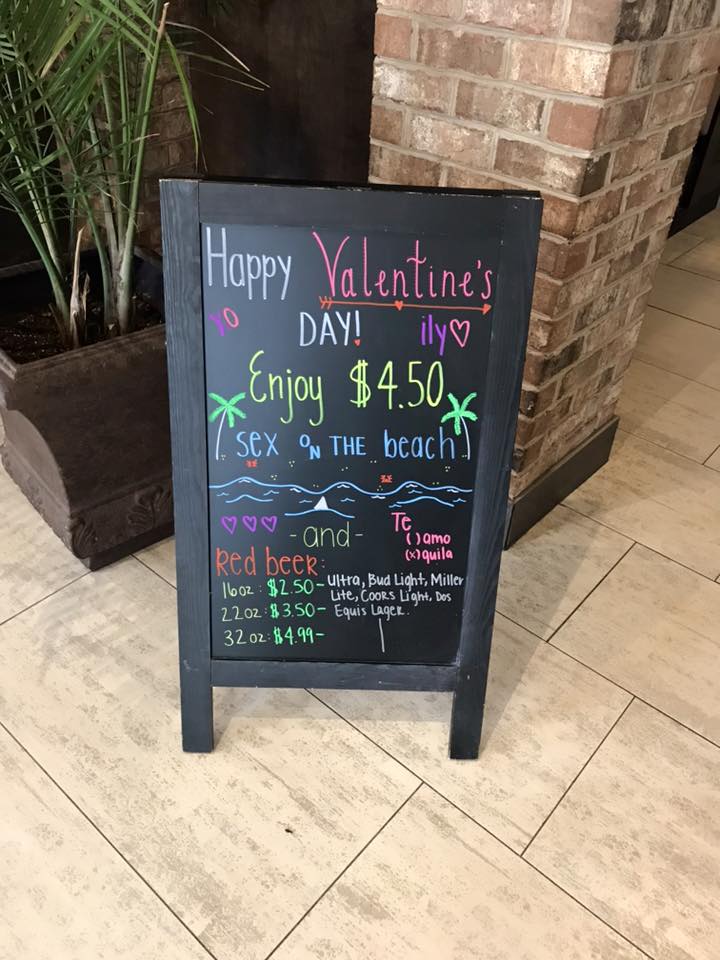 Happy Valentine's
yo DAY! ily
Enjoy $4.50
sex ON THE beach
-and-
Te
( ) amo
(x) quila
Red beer:
16oz: $2.50- Ultra, Bud Light, Miller
22oz: $3.50- Lite, Coors Light, Dos
32oz: $4.99- Equis Lager.